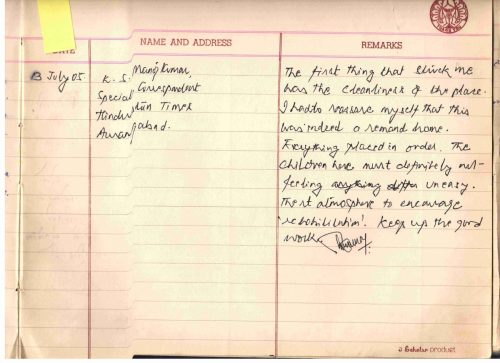 DATE
NAME AND ADDRESS
REMARKS
13 July 05
K. S. Manoj Kumar,
Special Correspondent
Hindustan Times
Aurangabad.
The first thing that struck me
was the cleanliness of the place.
I had to reassure myself that this
was indeed a remand home.
Everything placed in order. The
children here must definitely not
feeling uneasy.
atmosphere to encourage
'rehabilitation'. Keep up the good
work.
a Scholar product